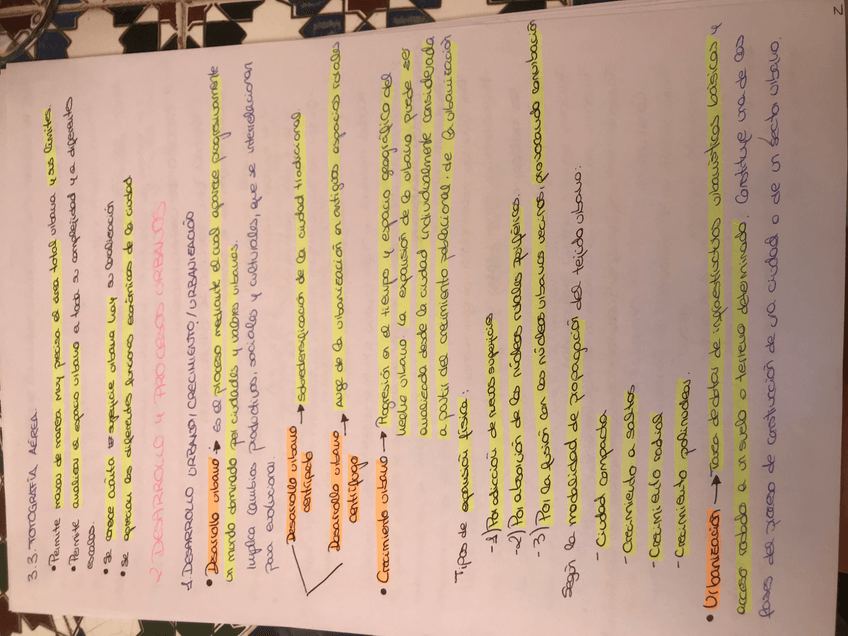 3.3. FOTOGRAFÍA AÉREA
• Permite marcar de manera muy precisa el área total urbana y sus límites.
• Permite analizar el espacio urbano en toda su complejidad y a diferentes
escalas.
• Se conoce cuánta superficie urbana hay y su localización
• Se aprecian las diferentes funciones económicas de la ciudad
2. DESARROLLO Y PROCESOS URBANOS
1. DESARROLLO URBANO / CRECIMIENTO / URBANIZACIÓN
• Desarrollo urbano → es el proceso mediante el cual aparece progresivamente
un mundo dominado por ciudades y valores urbanos.
Implica cambios productivos, sociales y culturales, que se interrelacionan
para evolucionar.
Desarrollo urbano → sobredensificación de la ciudad tradicional.
centrípeto
Desarrollo urbano → auge de la urbanización en antiguos espacios rurales
centrífugo
• Crecimiento urbano → Progresión en el tiempo y espacio geográfico del
hecho urbano. La expansión de lo urbano puede ser
analizada desde la ciudad individualmente considerada
a partir del crecimiento poblacional: de la urbanización
Tipos de expansión física:
-1) Por adición de nueva superficie
-2) Por absorción de los núcleos rurales periféricos.
-3) Por la fusión con los núcleos urbanos vecinos, provocando conurbación
Según la modalidad de propagación del tejido urbano:
- Ciudad compacta
- Crecimiento a saltos
- Crecimiento radial
- Crecimiento polinuclear.
• Urbanización → Tarea de dotar de infraestructuras urbanísticas básicas y
acceso rodado a un suelo o terreno determinado. Constituye una de las
fases del proceso de construcción de una ciudad o de un sector urbano.
2